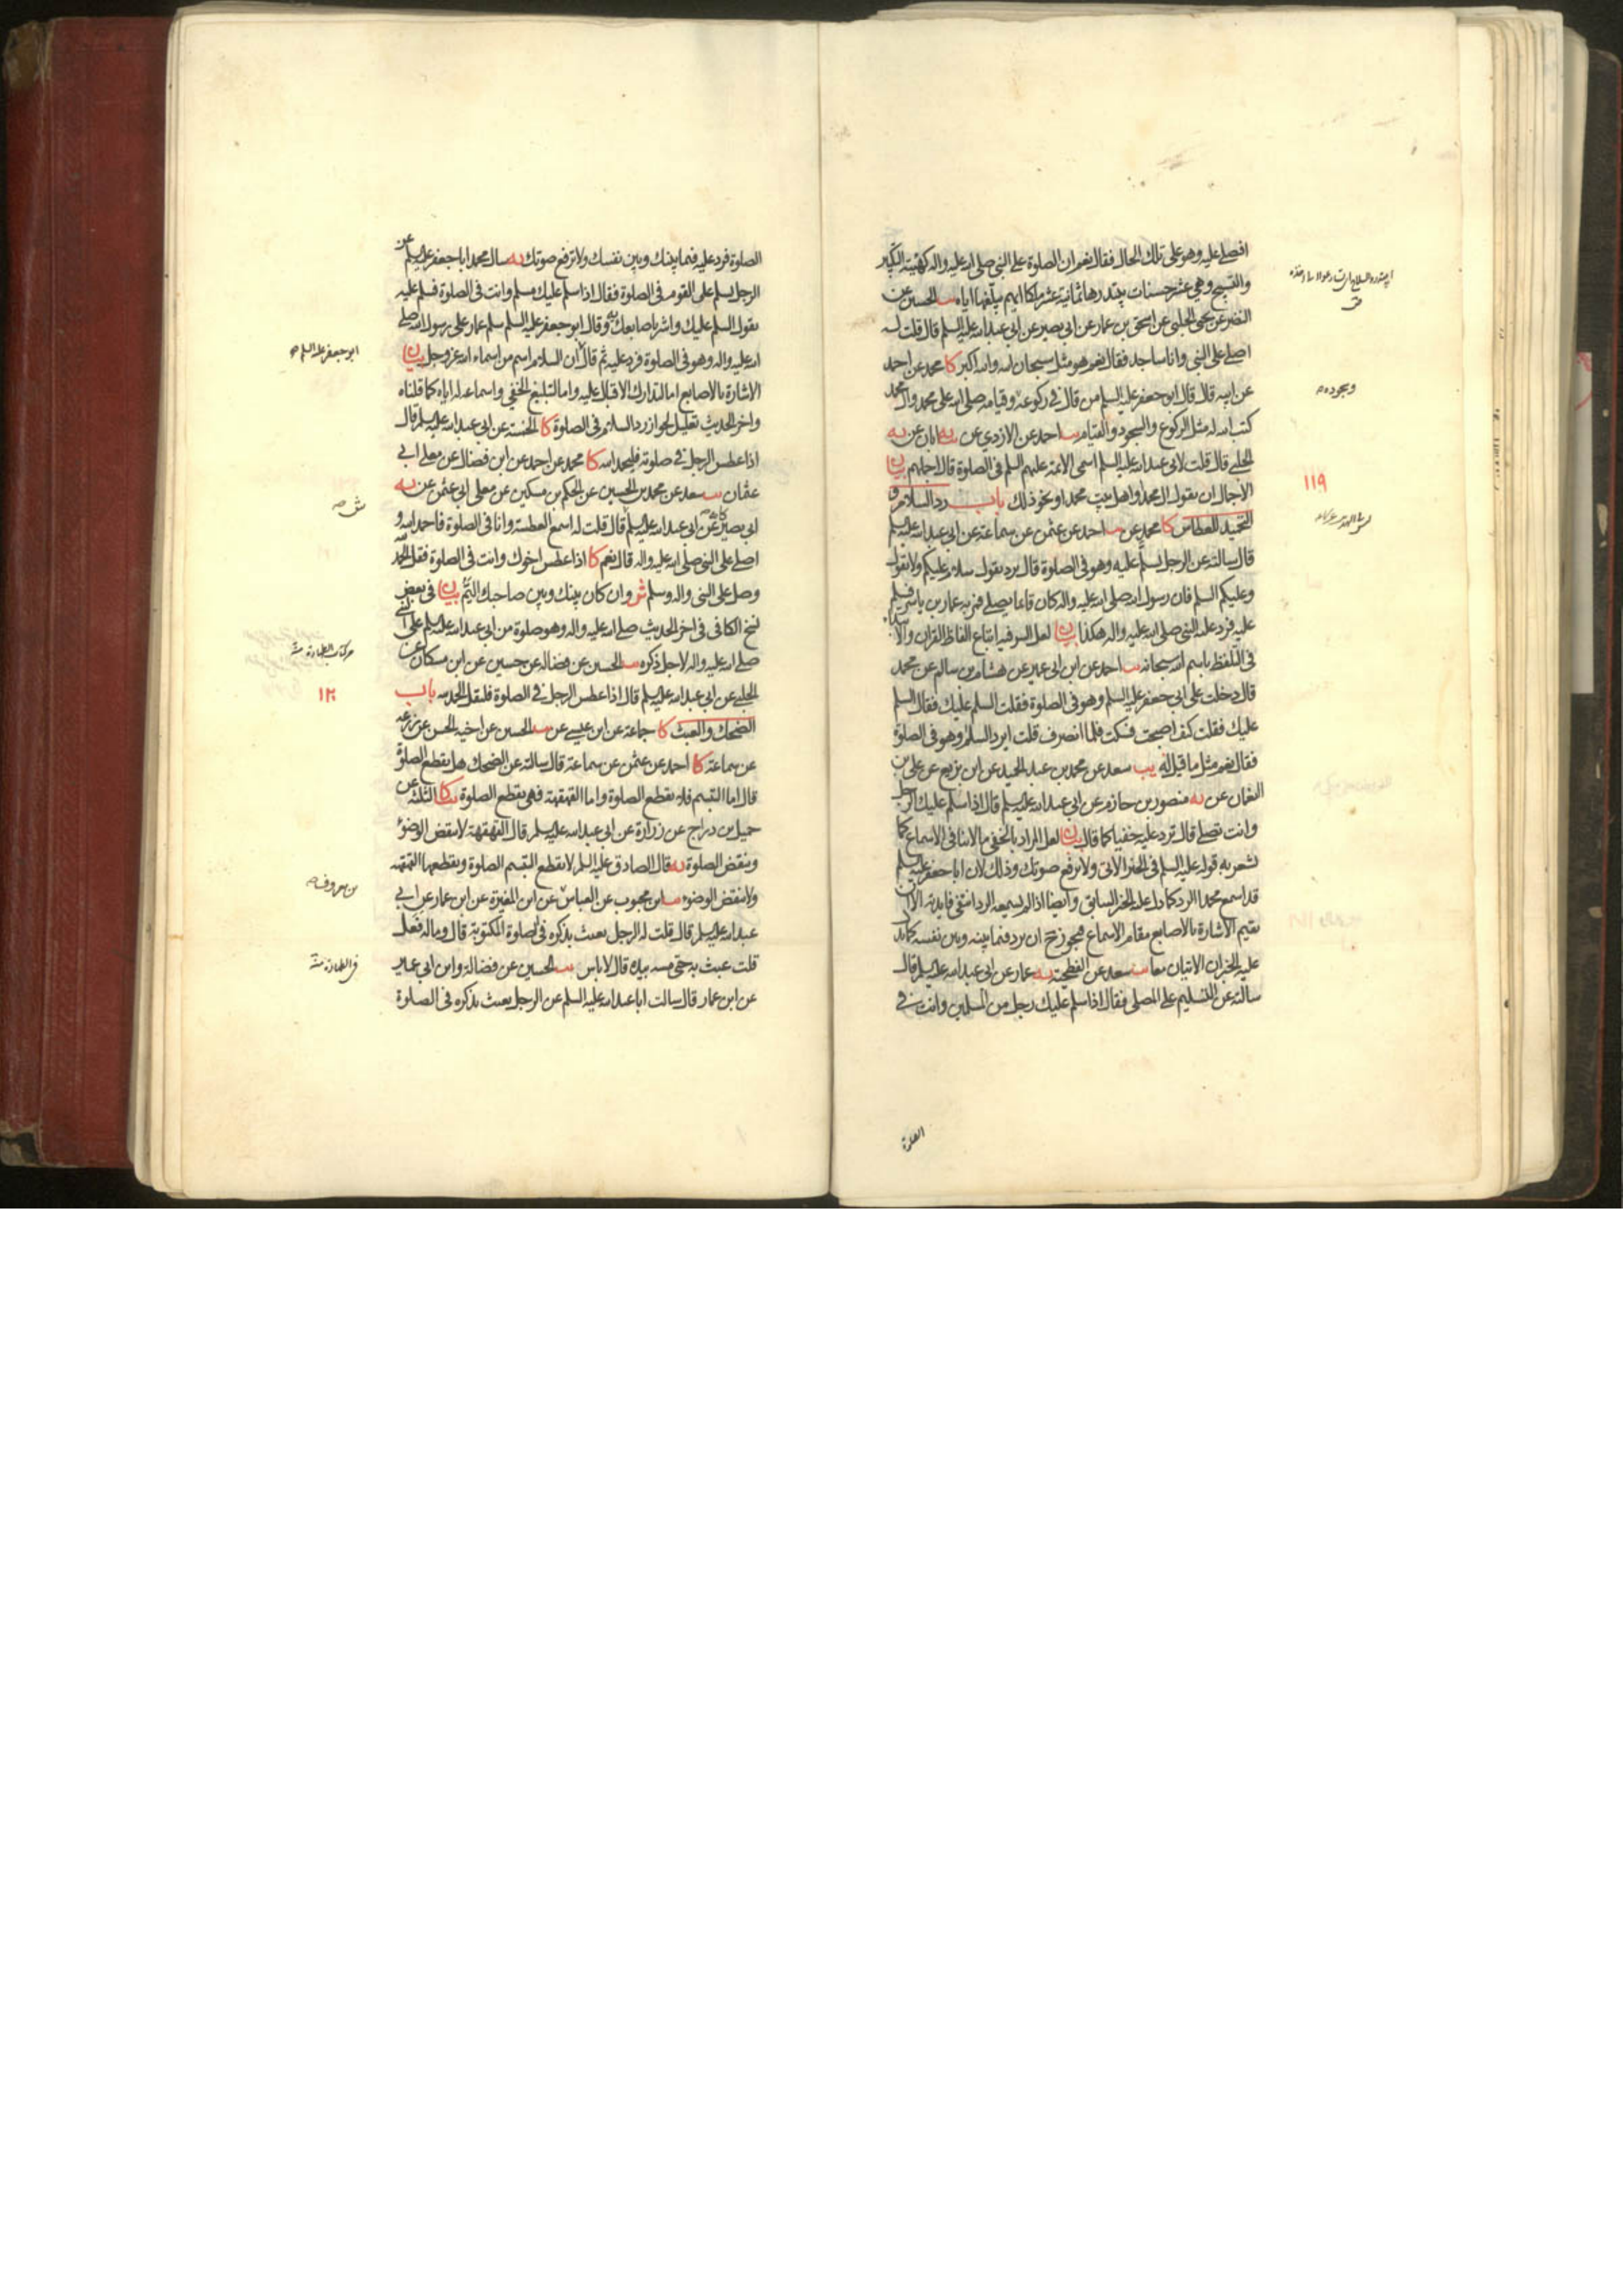 افصلي عليه وهو على تلك الحال فقال نعم ان الصلوة على النبي صلى الله عليه واله كهيئة التكبير
والتسبيح وهي عشر حسنات يبتدرها ثمانية عشر ملكا ايهم يبلغها اياه يب الحسين عن
النضر عن يحيى الحلبي عن اسحق بن عمار عن ابي بصير عن ابي عبد الله عليه السلم قال قلت له
اصلي على النبي وانا ساجد فقال نعم هو مثل سبحان الله والله اكبر كا محمد عن احمد
عن ابيه قال قال ابو جعفر عليه السلم من قال في ركوعه وقيامه صلى الله على محمد وال محمد
كتب الله له مثل الركوع والسجود والقيام يب احمد عن الازدي عن يه ابان عن يه
الحلبي قال قلت لابي عبد الله عليه السلم اسمى الائمة عليهم السلم في الصلوة قال اجملهم بيان
الاجمال ان يقول ال محمد او اهل بيت محمد او نحو ذلك باب رد السلام و
التحميد للعطاس كا محمد عن يب احمد عن عثمن عن سماعة عن ابي عبد الله عليه السلم
قال سالته عن الرجل يسلم عليه وهو في الصلوة قال يرد يقول سلام عليكم ولا يقول
وعليكم السلم فان رسول الله صلى الله عليه واله كان قائما يصلي فمر به عمار بن ياسر فسلم
عليه فرد عليه النبي صلى الله عليه واله هكذا بيان لعل السر فيه اتباع الفاظ القران
في التلفظ باسم الله سبحانه يب احمد عن ابن ابي عمير عن هشام بن سالم عن محمد
قال دخلت على ابي جعفر عليه السلم وهو في الصلوة فقلت السلم عليك فقال السلم
عليك فقلت كيف اصبحت فسكت فلما انصرف قلت ايرد السلم وهو في الصلوة
فقال نعم مثل ما قيل له يب سعد عن محمد بن عبد الحميد عن ابن بزيع عن علي بن
النعمان عن يه منصور بن حازم عن ابي عبد الله عليه السلم قال اذا سلم عليك الرجل
وانت تصلي قال ترد عليه خفيا كما قال بيان لعل المراد بالخفي ما لا ينافي الاسماع كما
يشعر به قوله عليه السلم في الخبر الاتي ولا ترفع صوتك وذلك لان ابا جعفر عليه السلم
قد اسمع محمدا الرد كما دل عليه الخبر السابق وايضا اذا لم يسمعه الرد انتفى فايدته الا ان
نقيم الاشارة بالاصابع مقام الاسماع فيجوز ح ان يرد فيما بينه وبين نفسه كما يدل
عليه الخبران الاتيان معا يب سعد عن الفطحية يه عمار عن ابي عبد الله عليه السلم قال
سالته عن التسليم على المصلي فقال اذا سلم عليك رجل من المسلمين وانت في
وسجوده
١١٩
الصلوة
الصلوة فرد عليه فيما بينك وبين نفسك ولا ترفع صوتك يه سال محمد ابا جعفر عليه السلم عن
الرجل يسلم على القوم في الصلوة فقال اذا سلم عليك مسلم وانت في الصلوة فسلم عليه
تقول السلم عليك واشر باصابعك يه وقال ابو جعفر عليه السلم سلم عمار على رسول الله صلى
الله عليه واله وهو في الصلوة فرد عليه ثم قال ان السلام اسم من اسماء الله عز وجل بيان
الاشارة بالاصابع اما لتدارك الاقبال عليه واما لتبليغ الخفي واسماعه له اياه كما قلناه
واخر الحديث تعليل لجواز رد السلام في الصلوة كا الخمسة عن ابي عبد الله عليه السلم قال
اذا عطس الرجل في صلوته فليحمد الله كا محمد عن احمد عن ابن فضال عن معلى ابي
عثمان يب سعد عن محمد بن الحسين عن الحكم بن مسكين عن معلى ابي عثمن عن يه
ابي بصير عن ابي عبد الله عليه السلم قال قلت له اسمع العطسة وانا في الصلوة فاحمد الله و
اصلي على النبي صلى الله عليه واله قال نعم كا اذا عطس اخوك وانت في الصلوة فقل الحمد لله
وصل على النبي واله وسلم ش وان كان بينك وبين صاحبك اليم بيان في بعض
نسخ الكافي في اخر الحديث صلى الله عليه واله وهو صلوة من ابي عبد الله عليه السلم على النبي
صلى الله عليه واله لاجل ذكره يب الحسين عن فضالة عن حسين عن ابن مسكان عن
الحلبي عن ابي عبد الله عليه السلم قال اذا عطس الرجل في الصلوة فليقل الحمد لله باب
الضحك والعبث كا جماعة عن ابن عيسى عن يب الحسين عن اخيه الحسن عن زرعة
عن سماعة كا احمد عن عثمن عن سماعة قال سالته عن الضحك هل يقطع الصلوة
قال اما التبسم فلا يقطع الصلوة واما القهقهة فهي يقطع الصلوة يب كا الثلثة عن
جميل بن دراج عن زرارة عن ابي عبد الله عليه السلم قال القهقهة لا ينقض الوضوء
وينقض الصلوة يه قال الصادق عليه السلم لا يقطع التبسم الصلوة ويقطعها القهقهة
ولا ينقض الوضوء يب ابن محبوب عن العباس عن ابن المغيرة عن ابن عمار عن ابي
عبد الله عليه السلم قال قلت له الرجل يعبث بذكره في الصلوة المكتوبة قال وماله فعل
قلت عبث به حتى مسه بيده قال لا باس يب الحسين عن فضالة وابن ابي عمير
عن ابن عمار قال سالت ابا عبد الله عليه السلم عن الرجل يعبث بذكره في الصلوة
ابو جعفر عليه السلم
ش
في كتاب الطهارة منه
١٢٠
بن معروف
في الطهارة منه